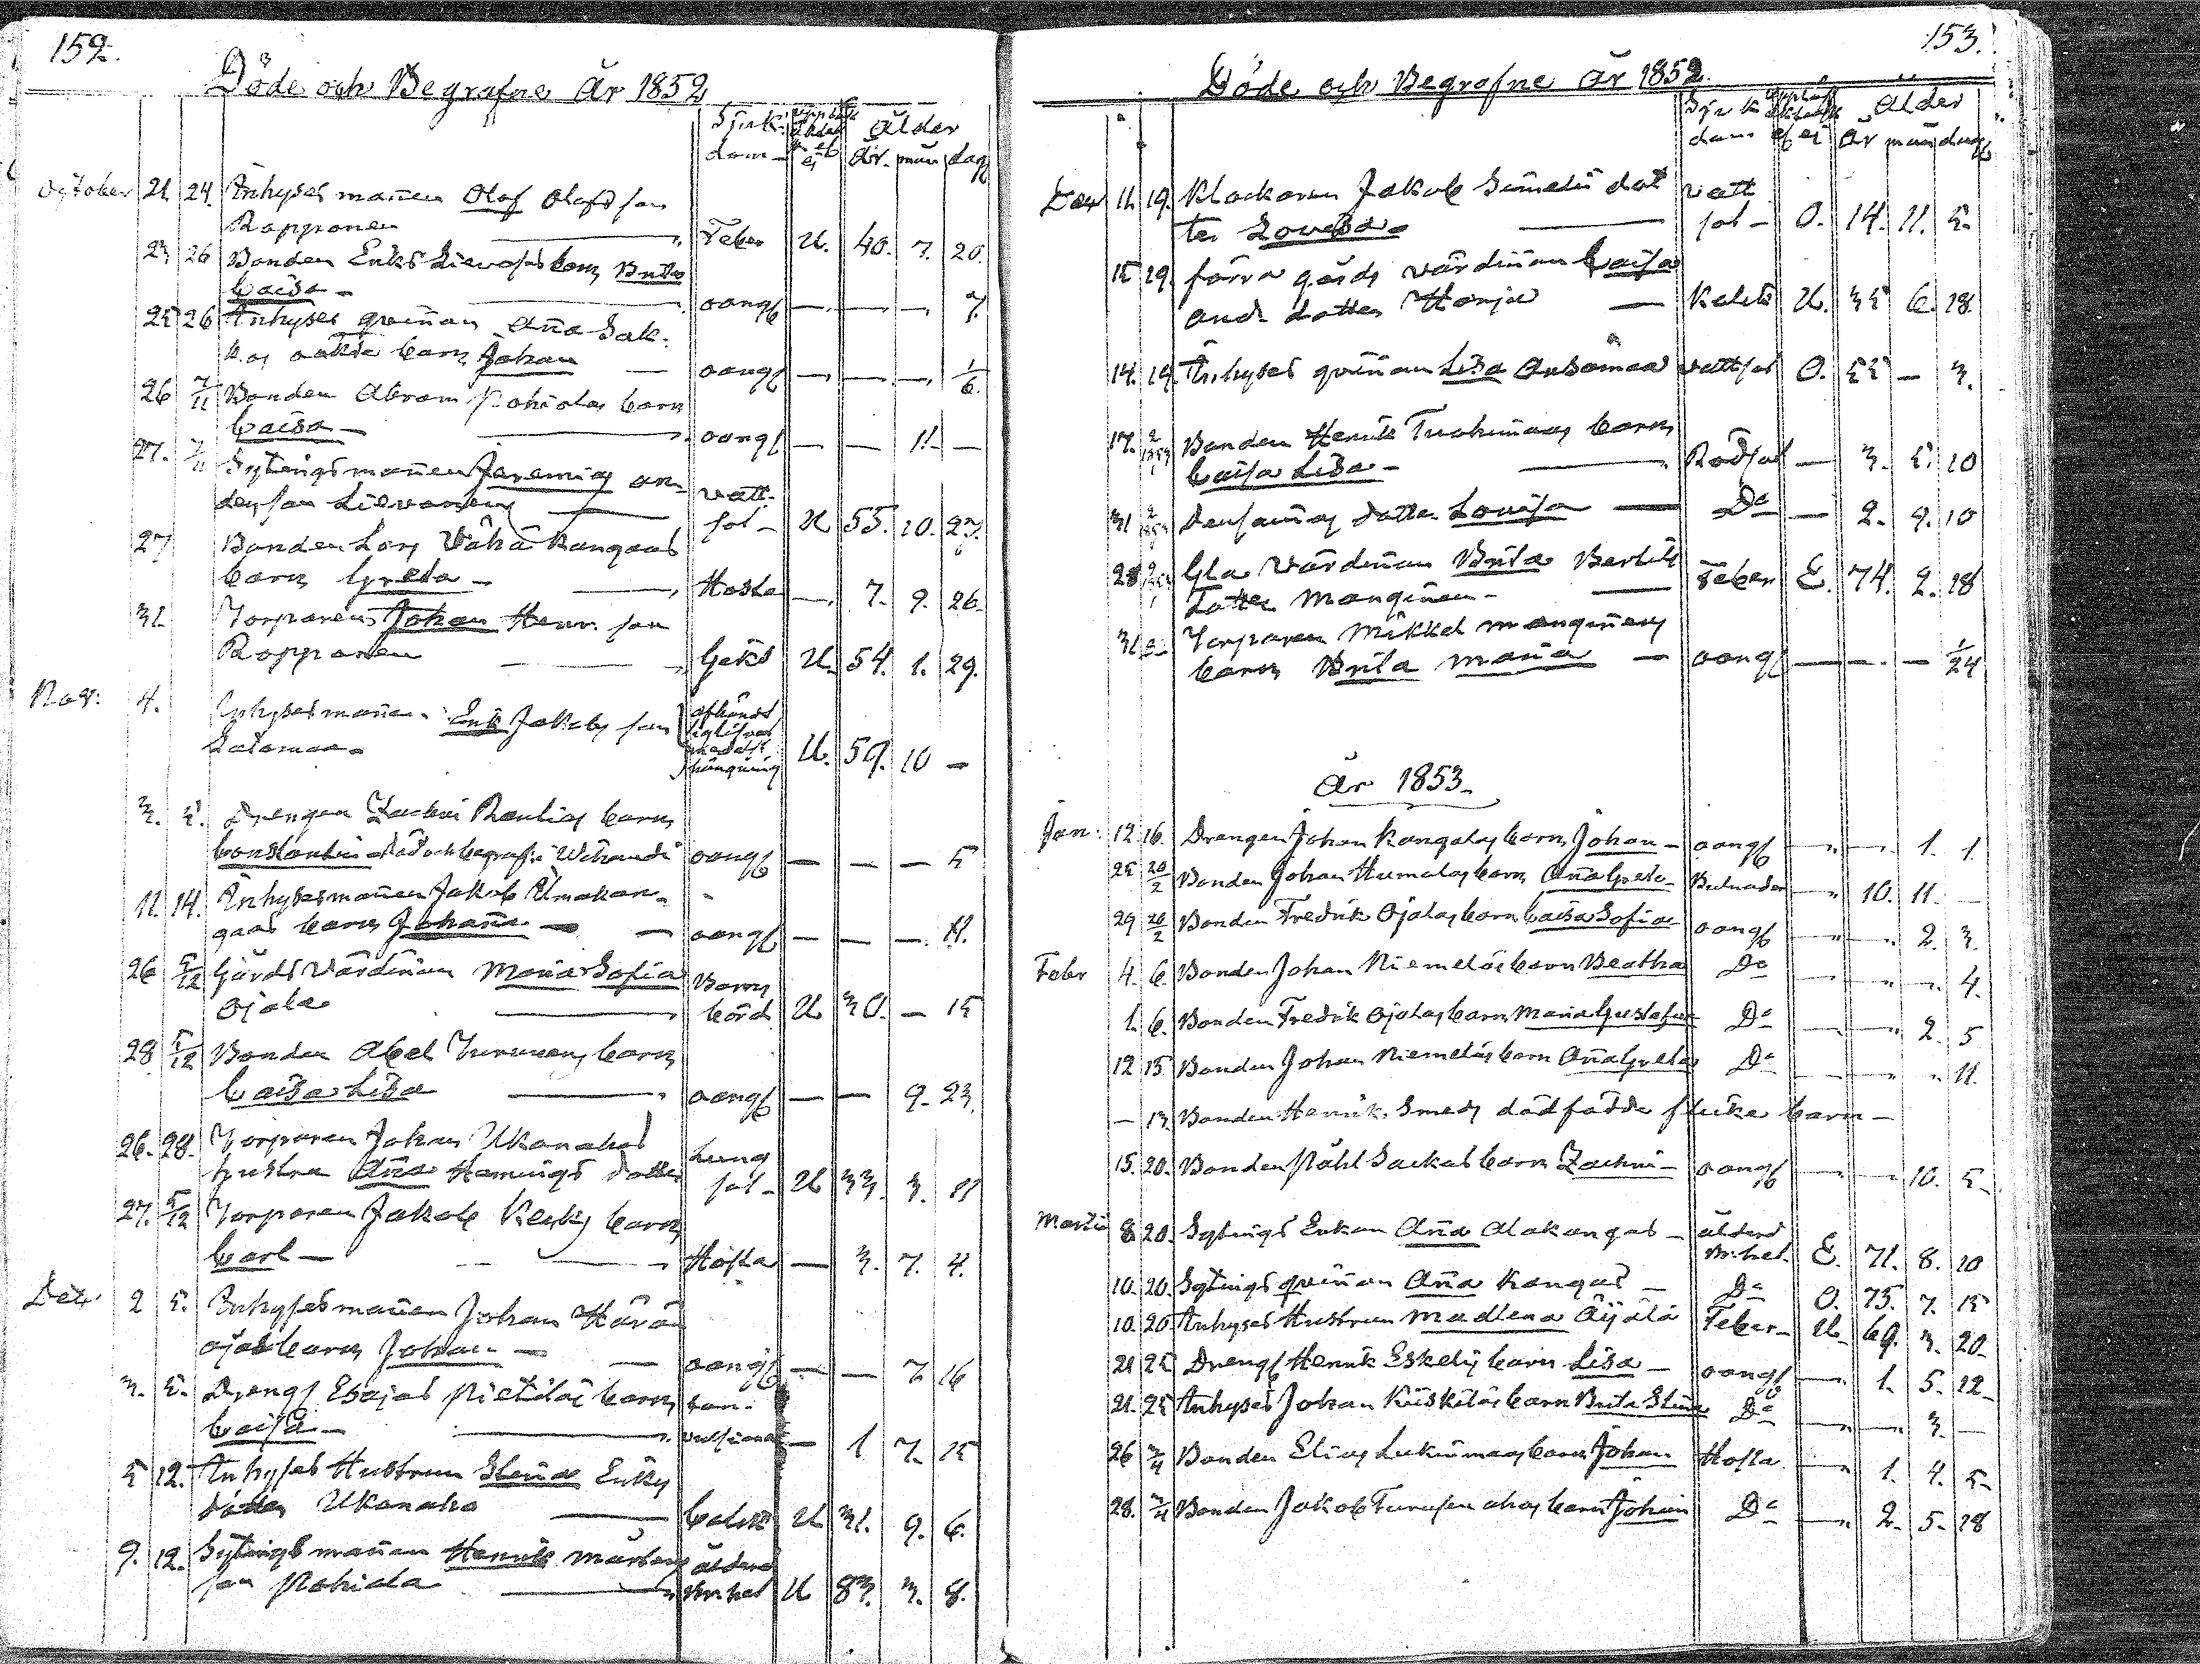 152.
Döde och Begrafne År 1852
Sjuk-
dom
Ålder
år. mån dag
October 21. 24. Inhyses mañen Olof Olofs son
Ropponen Feber U. 40. 7. 20.
23 26 Bonden Eriks barn Brita
Caisa - oangf — — — 7.
25 26 Inhyses qviñan Aña
barn Johan — oangf — — — 1/6.
26 7/11 Bonden Abram Pohiolas barn
Caisa - oangf — — 11. —
27. 7/11 Sytingsmañen Jeremias An-
ders son vatt-
sot - U 55. 10. 27.
27 Bonden Lars Vähä Kangaas
barn Greta - Hosta — 7. 9. 26.
31. Torparen Johan Henr. son
Ropponen U. 54. 1. 29.
Nov: 4. Inhyses mañen Erik Jakobs son
Salomaa - hängning U. 59. 10 —
3. 5. Drengen Zachri Rautios barn
Constantin död och begrafn: oangf — — — 5
11. 14. Inhysesmañen Jakob Ylmakan-
gaas barn Johaña — oangf — — — 11.
26 5/12 Gårds Värdiñan Maria Sofia
Ojala Barns
börd U 30. — 15
28 5/12 Bonden Abel Turunens barn
Caisa Lisa oangf — — 9. 23.
26. 28. Torparen Johan Ukonahos
hustru Aña Hemmings dotter lung
sot - U 33. 3. 11
27. 5/12 Torparen Jakob barn
Carl — Hosta — 3. 7. 4.
Dec 2 5. Inhyses mañen Johan Härän
ojas barn Johan — oangf — — 7 16
3. 5. Drengs Esajas Pietiläs barn
Caisa - kon-
vulsioner — 1 7. 15
5 12. Inhyses Hustrun Stina Eriks
dotter Ukonaho U 31. 9. 6.
9. 12. Sytingsmañen Henrik Mårtens
son Pohiola ålderd
om.het U 83. 3. 8.
153.
Döde och Begrafne År 1852.
Sjuk
dom
Ålder
År mån dag
Dec 11. 19. Klockaren Jakob Simelii dot
ter Lovisa - vatt
sot - O. 14. 11. 5.
15 19. förra gårds värdiñan Caisa
And. dotter Harju — U. 35 6. 18.
14. 19. Inhyses qviñan Lisa Ansamaa vattsot O. 55 — 3.
17. 2/1 1853 Bonden Henrik Tuohimaas barn
Caisa Lisa - Rödsot — 3. 5. 10
31 2/1 1853 Densammas dotter Lovisa — Do — 2. 9. 10
28 Gla Värdiñan Brita Bertils
dotter Mangiñen - Feber E. 74. 2. 18
31 Torparen Mikkel Mangiñens
barn Brita Maria — oangf — — — 1/24
År 1853.
Jan: 12 16. Drengen Johan Kangolas barn Johan - oangf — — 1. 1.
25 20/2 Bonden Johan Humalas barn Aña Greta - — 10. 11. —
29 26/2 Bonden Fredrik Ojalas barn Caisa Sofia oangf — — 2. 3.
Febr 4. 6. Bonden Johan Niemeläs barn Beatha Do — — — 4.
1. 6. Bonden Fredrik Ojalas barn Maria Gustafva Do — — 2. 5
12 15. Bonden Johan Niemeläs barn Aña Greta Do — — — 11.
— 13. Bonden Henrik Smeds dödfödde flicke barn —
15. 20. Bonden Påhl barn Zachri - oangf — — 10. 5.
Martii 8 20. Sytings Enkan Aña Alakangas - ålderd
om.het. E. 71. 8. 10
10. 20. Sytings qviñan Aña Kangas — Do O. 75. 7. 15
10. 20. Inhyses Hustrun Madlena Äijälä Feber - U. 69. 3. 20.
21 25 Drengs Henrik Eskelis barn Lisa - oangf — 1. 5. 12.
21. 25 Inhyses Johan Kiiskiläs barn Brita Stina Do — — 3. —
26 3/4 Bonden Elias Lukinmaas barn Johan Hosta — 1. 4. 5.
28. 3/4 Bonden Jakob barn Johan Do — 2. 5. 18